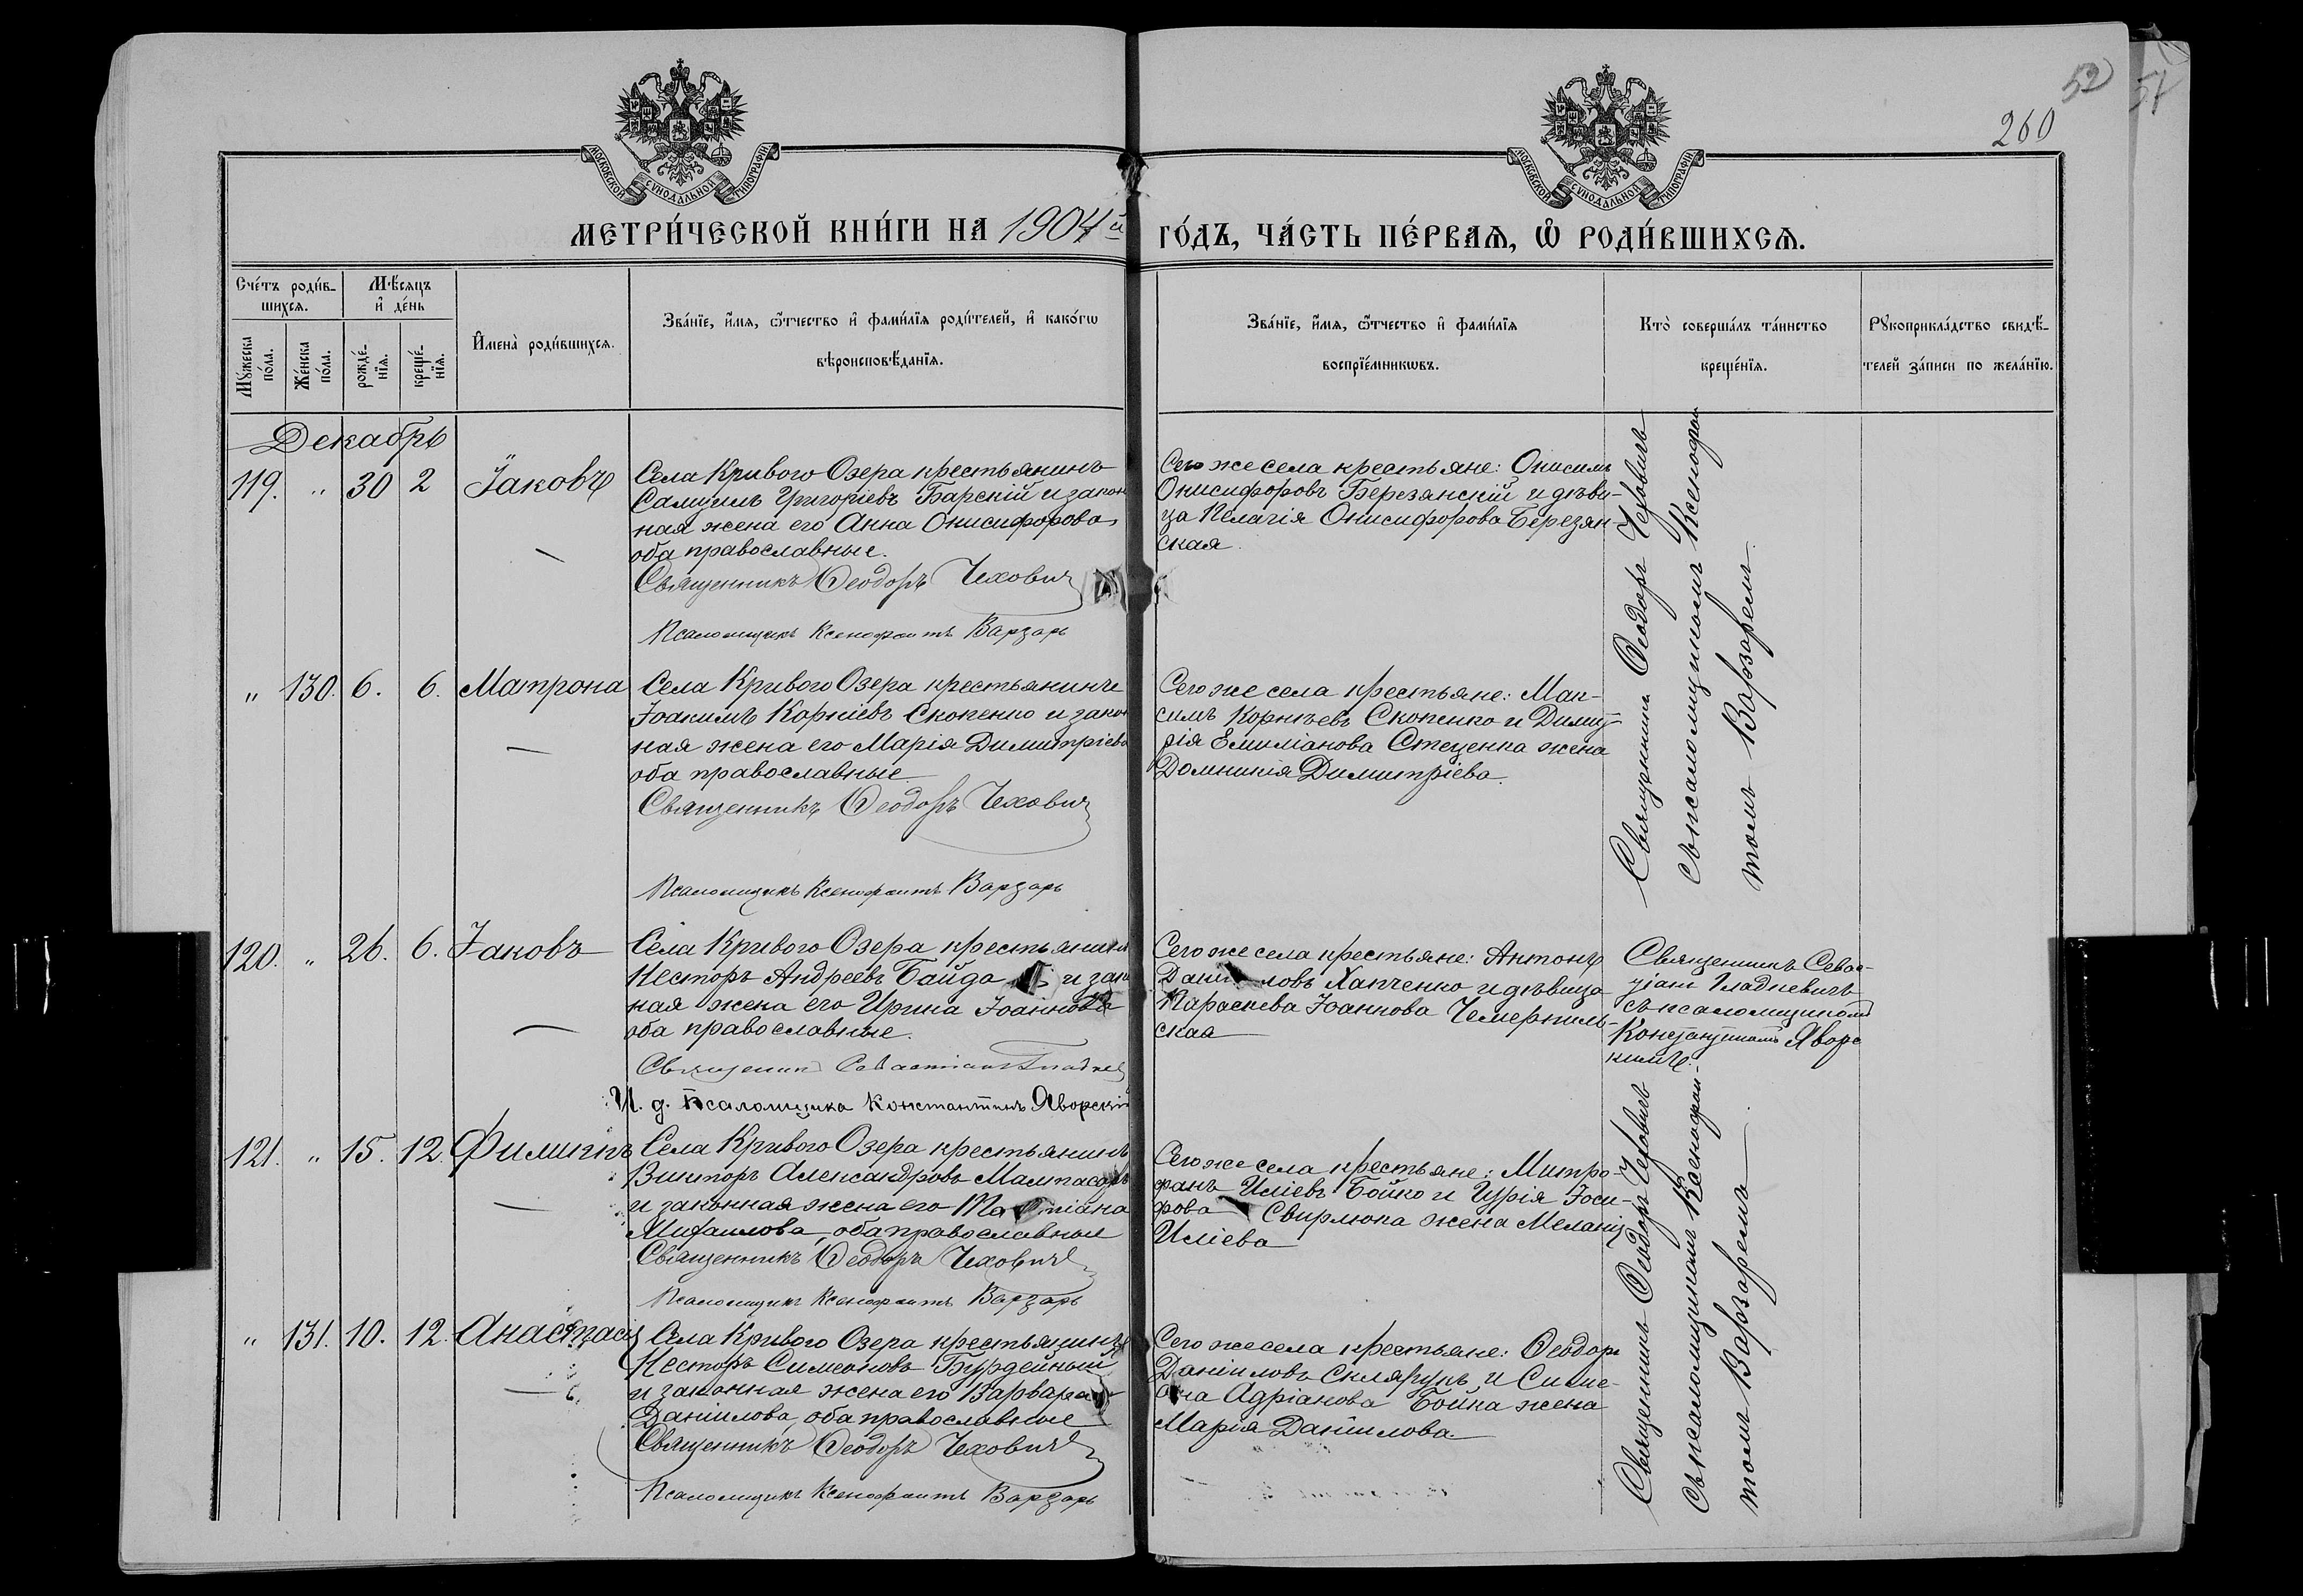 52
51
260
МОСКОВСКОЙ СѴНОДАЛЬНОЙ ТИПОГРАФІИ
МОСКОВСКОЙ СѴНОДАЛЬНОЙ ТИПОГРАФІИ
МЕТРИ́ЧЕСКОЙ КНИ́ГИ НА 1904й ГО́ДЪ, ЧА́СТЬ ПЕ́РВАѦ, Ѽ РОДИ́ВШИХСѦ.
Сче́тъ роди́в-
шихсѧ.
Мѣ́сѧцъ
и҆ де́нь
Мꙋ́жеска
по́ла.
Же́нска
по́ла.
рожде́-
нїѧ.
креще́-
нїѧ.
И҆мена̀ роди́вшихсѧ.
Зва́нїе, и҆́мѧ, ѻ҆́тчество и҆ фами́лїѧ роди́телей, и҆ како́гѡ
вѣроисповѣ́данїѧ.
Зва́нїе, и҆́мѧ, ѻ҆́тчество и҆ фами́лїѧ
воспрїе́мникѡвъ.
Кто̀ соверша́лъ та́инство
креще́нїѧ.
Рꙋкоприкла́дство свидѣ́-
телей за́писи по жела́нїю.
Декабрь
119. " 30 2 Іаковъ
Села Кривого Озера крестьянинъ
Самуилъ Григоріевъ Барскій и закон
ная жена его Анна Онисифорова
оба православные.
Священникъ Ѳеодоръ Чехович
Псаломщикъ Ксенофонтъ Варзарь
Сего же села крестьяне: Онисимъ
Онисифоровъ Березянскій и дѣви-
ца Пелагія Онисифорова Березян-
ская.
Священникъ Ѳеодоръ Чеховичъ
съ псаломщикомъ Ксенофон
томъ Варзаремъ.
" 130. 6. 6. Матрона
Села Кривого Озера крестьянинъ
Іоакимъ Корніевъ Скопенко и закон
ная жена его Марія Димитріева
оба православные
Священникъ Ѳеодоръ Чехович
Псаломщикъ Ксенофонтъ Варзарь
Сего же села крестьяне: Мак-
симъ Корнѣевъ Скопенко и Димит-
рія Емиліанова Стеценка жена
Домникія Димитріева.
120. " 26. 6. Іаковъ
Села Кривого Озера крестьянинъ
Несторъ Андреевъ Байда и зако
ная жена его Ирина Іоаннова
оба православные.
Священник Севастіанъ Гладкев
И. д. Псаломщика Константинъ Яворскій
Сего же села крестьяне: Антонъ
Даниловъ Хапченко и дѣвица
Параскева Іоаннова Чемериль-
ская
Священникъ Севас-
тіанъ Гладкевичъ
съ псаломщикомъ
Константиномъ Яворс
кимъ.
121. " 15. 12. Филиппъ
Села Кривого Озера крестьянинъ
Викторъ Александровъ Малтасаръ
и законная жена его Татіана
Михаилова, оба православные
Священникъ Ѳеодоръ Чехович
Псаломщикъ Ксенофонтъ Варзарь
Сего же села крестьяне: Митро-
фанъ Иліевъ Бойко и Гурія Іоси-
фова Свирлюка жена Меланія
Иліева
Священникъ Ѳеодоръ Чеховичъ
съ псаломщикомъ Ксенофон-
томъ Варзаремъ
" 131. 10. 12. Анастасія
Села Кривого Озера крестьянинъ
Несторъ Симеоновъ Бурдейный
и законная жена его Варвара
Даніилова, оба православные
Священникъ Ѳеодоръ Чехович
Псаломщикъ Ксенофонтъ Варзарь
Сего же села крестьяне: Ѳеодоръ
Даніиловъ Склярукъ и Симе-
она Адріанова Бойка жена
Марія Даніилова